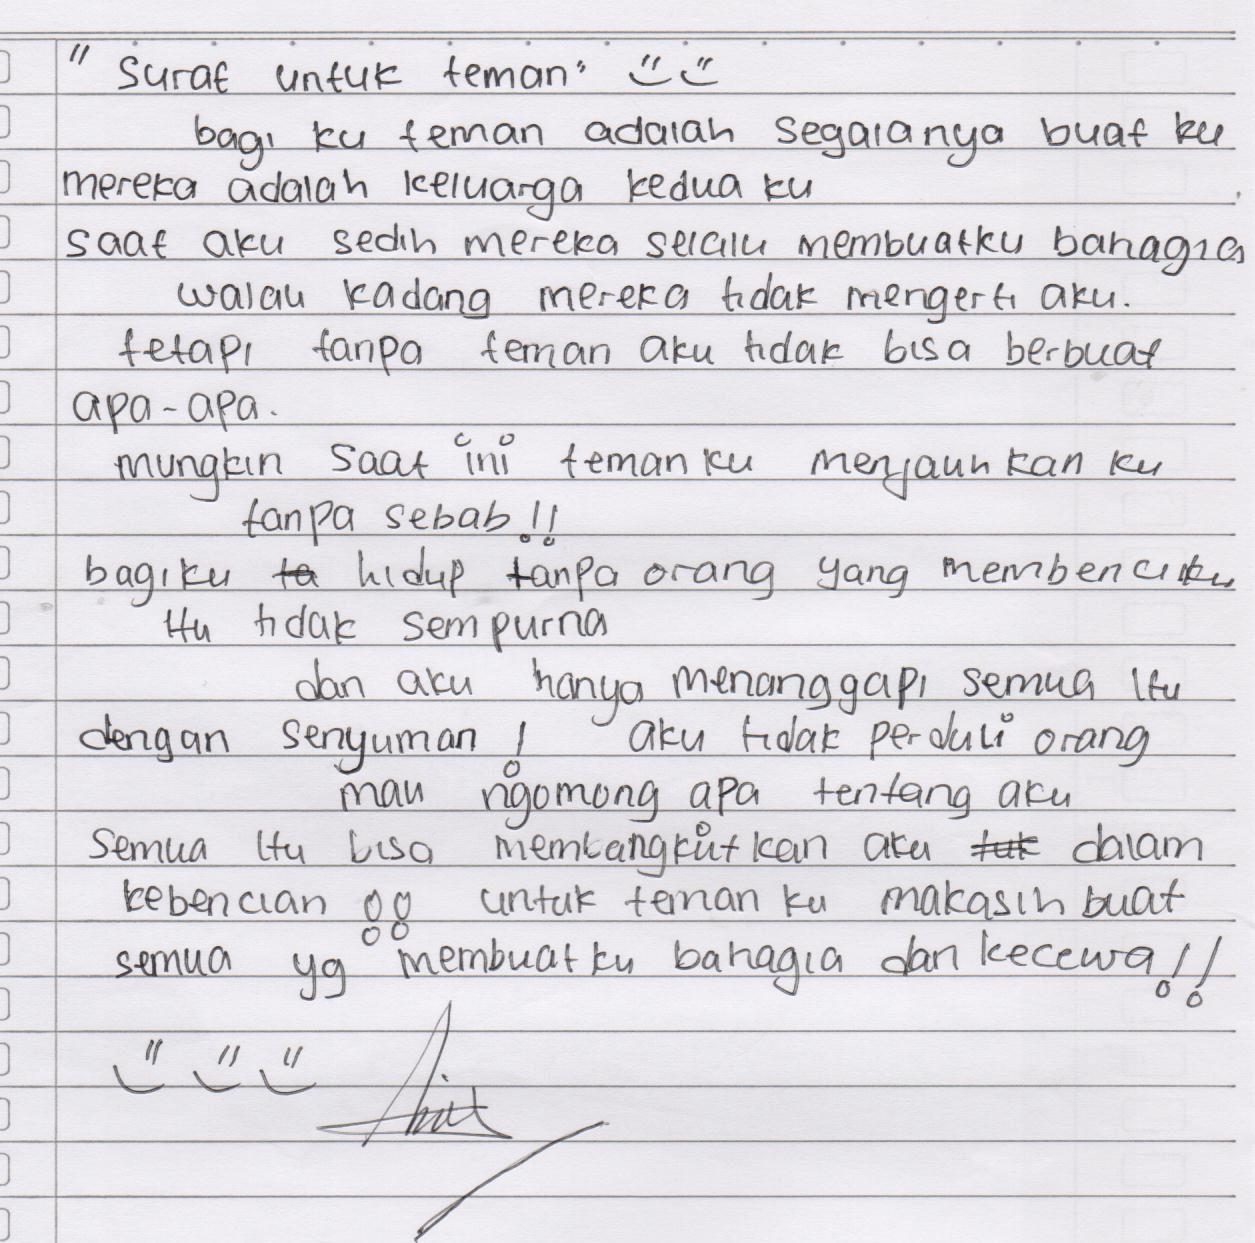 "Surat untuk teman"
bagi ku teman adalah segalanya buat ku
mereka adalah keluarga kedua ku
saat aku sedih mereka selalu membuatku bahagia
walau kadang mereka tidak mengerti aku.
tetapi tanpa teman aku tidak bisa berbuat
apa-apa.
mungkin saat ini teman ku menjauhkan ku
tanpa sebab!!
bagiku ta hidup tanpa orang yang membenciku
itu tidak sempurna
dan aku hanya menanggapi semua itu
dengan senyuman! aku tidak perduli orang
mau ngomong apa tentang aku
semua itu bisa membangkitkan aku tuk dalam
kebencian !! untuk teman ku makasih buat
semua yg membuatku bahagia dan kecewa!!